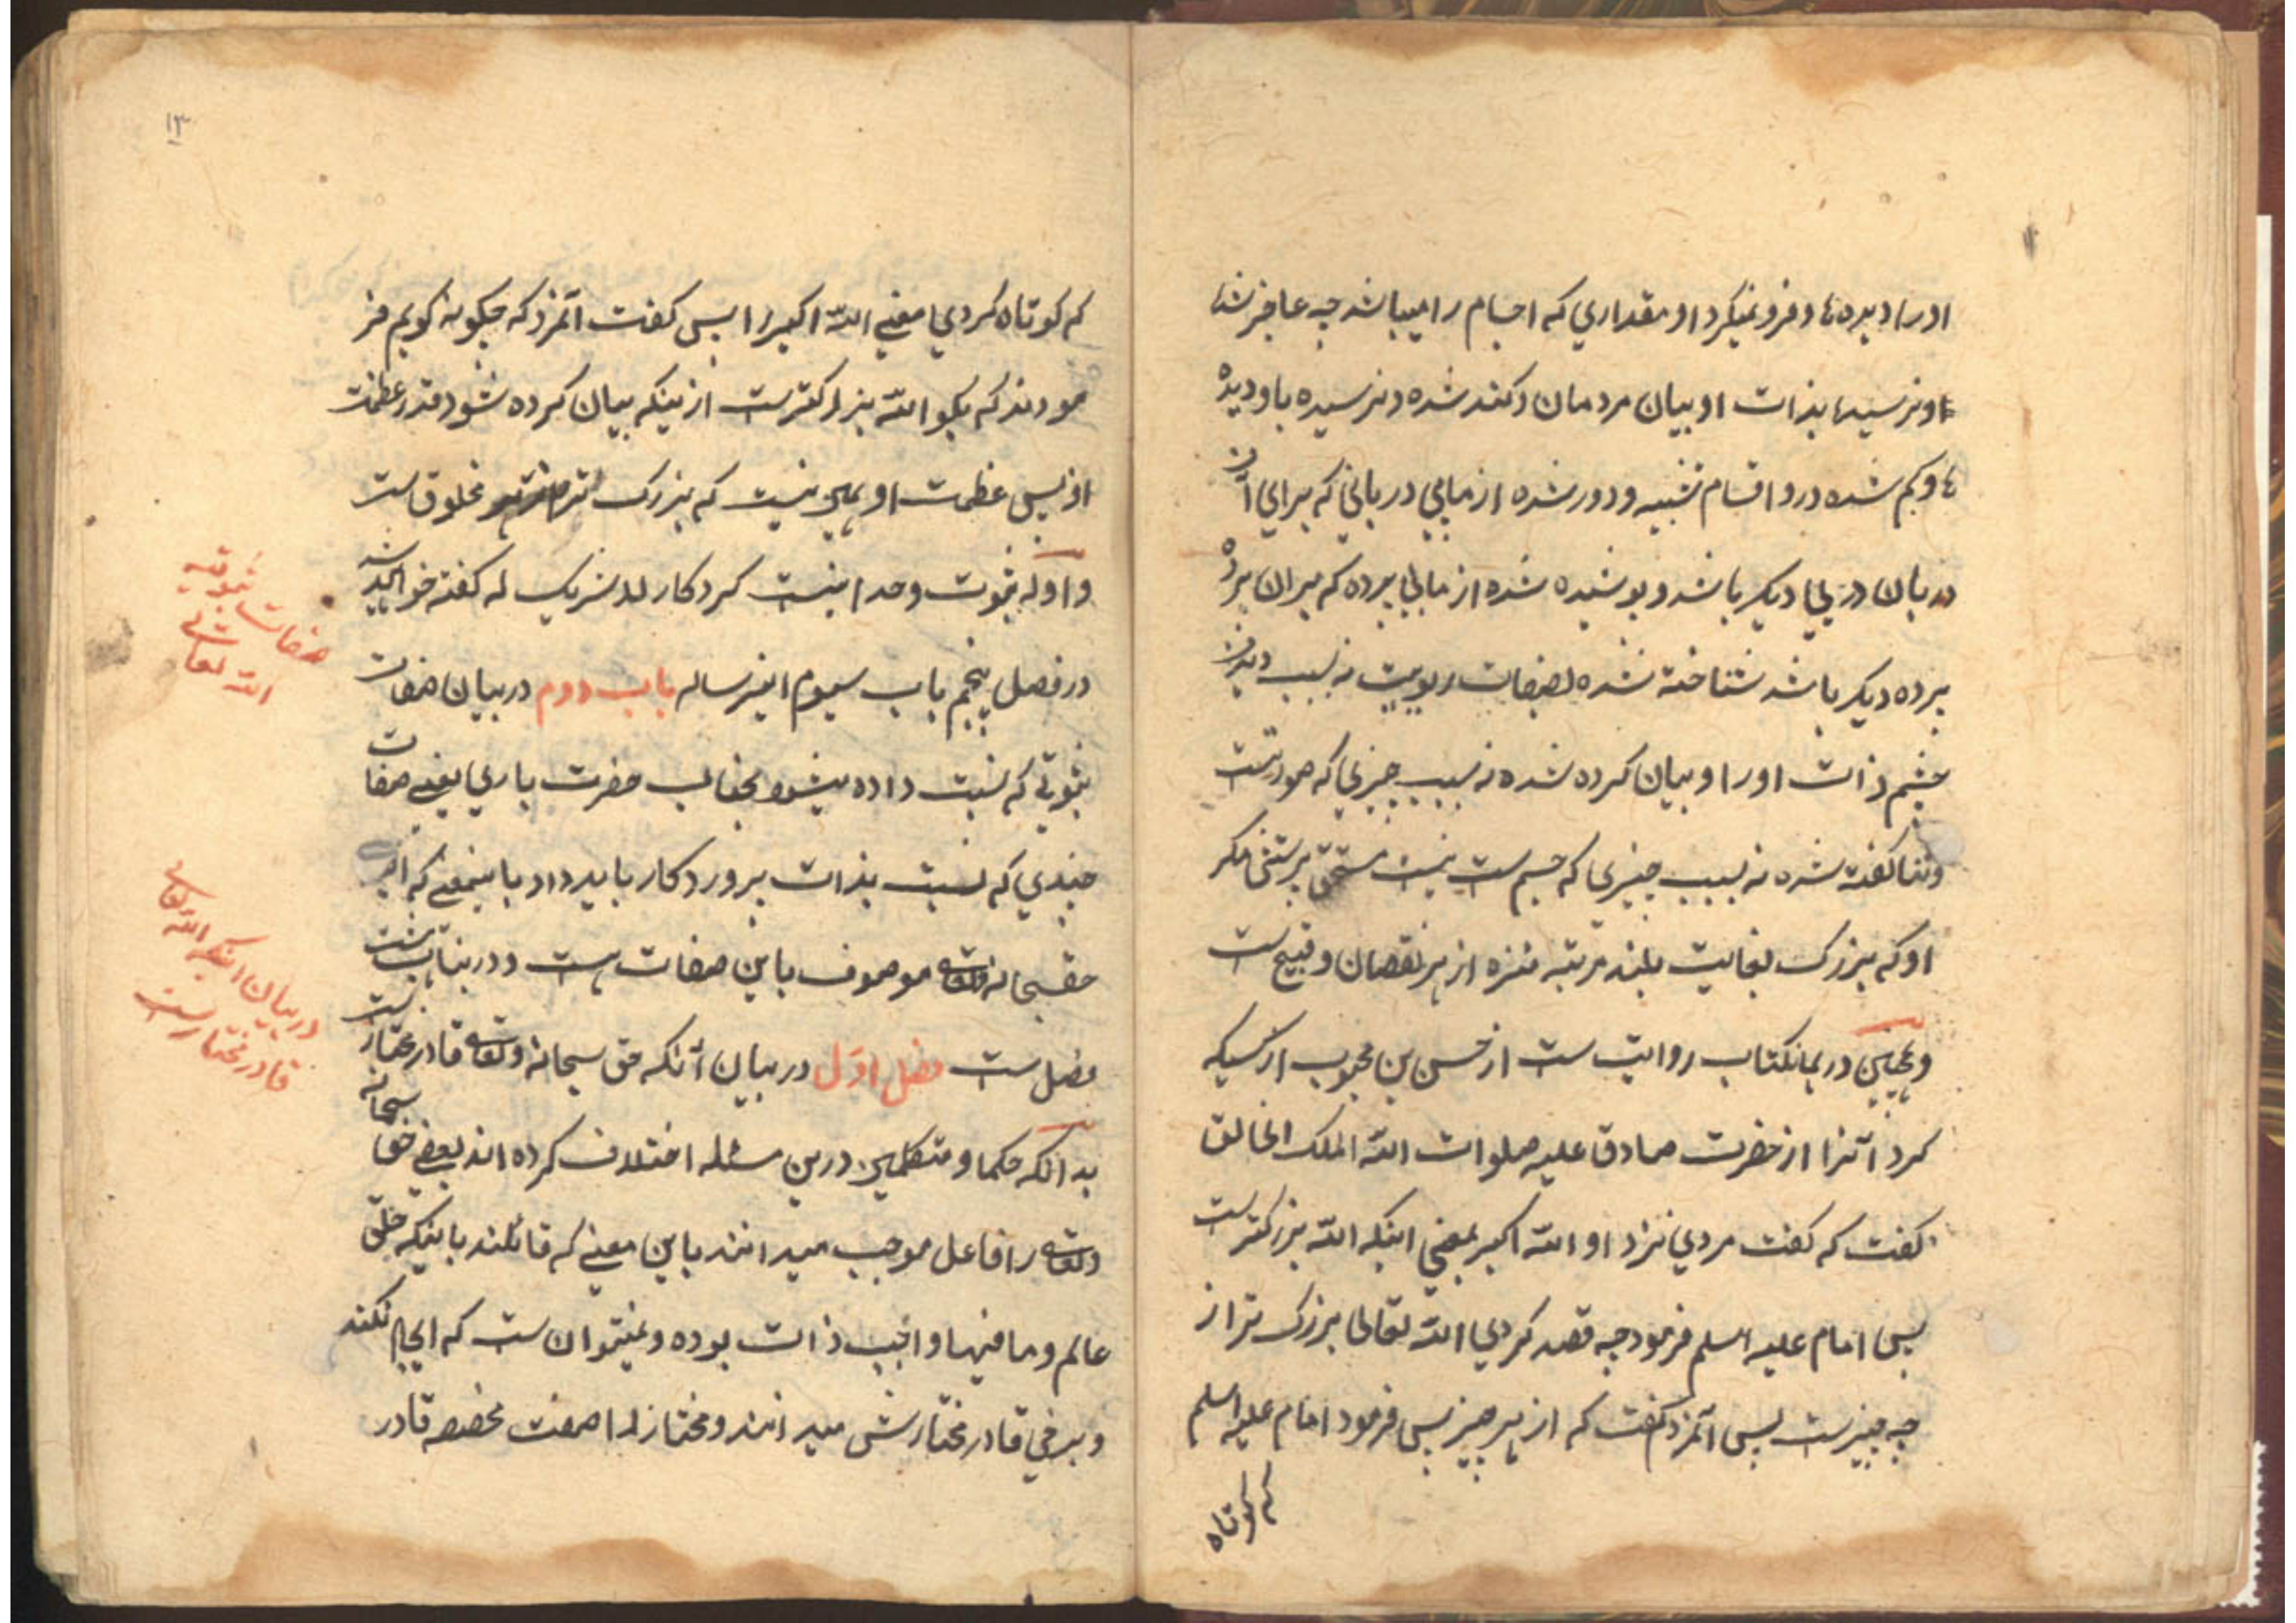 اورا دیدها و فرو نمیگرد او مقداری که اجسام را میباشد چه عاجز شد
او نرسید بذات او بیان مردمان و کند شده و نرسیده باو دیده
ها و کم شده درو اقسام تشبیه و دور شده از مابی دربانی که برای آن
دربان دربانی دیکر باشد و پوشیده شده از مابی پرده که بر ان پرده
پرده دیکر باشد شناخته شده بصفات ربوبیت نه بسبب دیدن
چشم ذات اورا و بیان کرده شده نه بسبب چیزی که صورتست
وثنا کفته شده نه بسبب چیزی که جسم ست نیست مستحق پرستش مکر
او که بزرک بغایت بلند مرتبه منزه از هر نقصان و قبیح ست
وهمچنین در همانکتاب روایت ست از حسن بن محبوب از کسیکه
کرد آنرا از حضرت صادق علیه صلوات الله الملک الخالق
کفت که کفت مردی نزد او الله اکبر بمعنی اینکه الله بزرکترست
پس امام علیه السلم فرمود چه قصد کردی الله تعالی بزرک تر از
چه چیزست پس آنمرد کفت که از هر چیز پس فرمود امام علیه السلم
که کوتاه
۱۳
که کوتاه کردی معنی الله اکبر را پس کفت آنمرد که چکونه کویم فر
مودند که بکو الله بزرکترست ازینکه بیان کرده شود قدر عظمت
او پس عظمت او همین نیست که بزرک تر مخلوق است
و ادله ثبوت وحدانیت کردکار لا شریک له کفته خواهد شد
در فصل پنجم باب سیوم اینرساله باب دوم در بیان صفات
ثبوتی که نسبت داده میشود بجناب حضرت باری یعنی صفات
چندی که نسبت بذات پروردکار باید داد باینمعنی که
حقسبحانه وتعالی موصوف باین صفات هست و درینباب هشت
فصل ست فصل اول در بیان آنکه حق سبحانه وتعالی قادر مختارست
بدانکه حکما و متکلمین درین مسئله اختلاف کرده اند بعضی حق سبحانه
وتعالی را فاعل موجب میدانند باین معنی که قائلند باینکه خلق
عالم و ما فیها واجب ذات بوده و نمیتوان ست که ایجاد نکند
و برخی قادر مختارش میدانند و مختار را صفت مخصصه قادر
صفات ثبوتیه
الله تعالی
در بیان اینکه الله تعالی
قادر مختارست